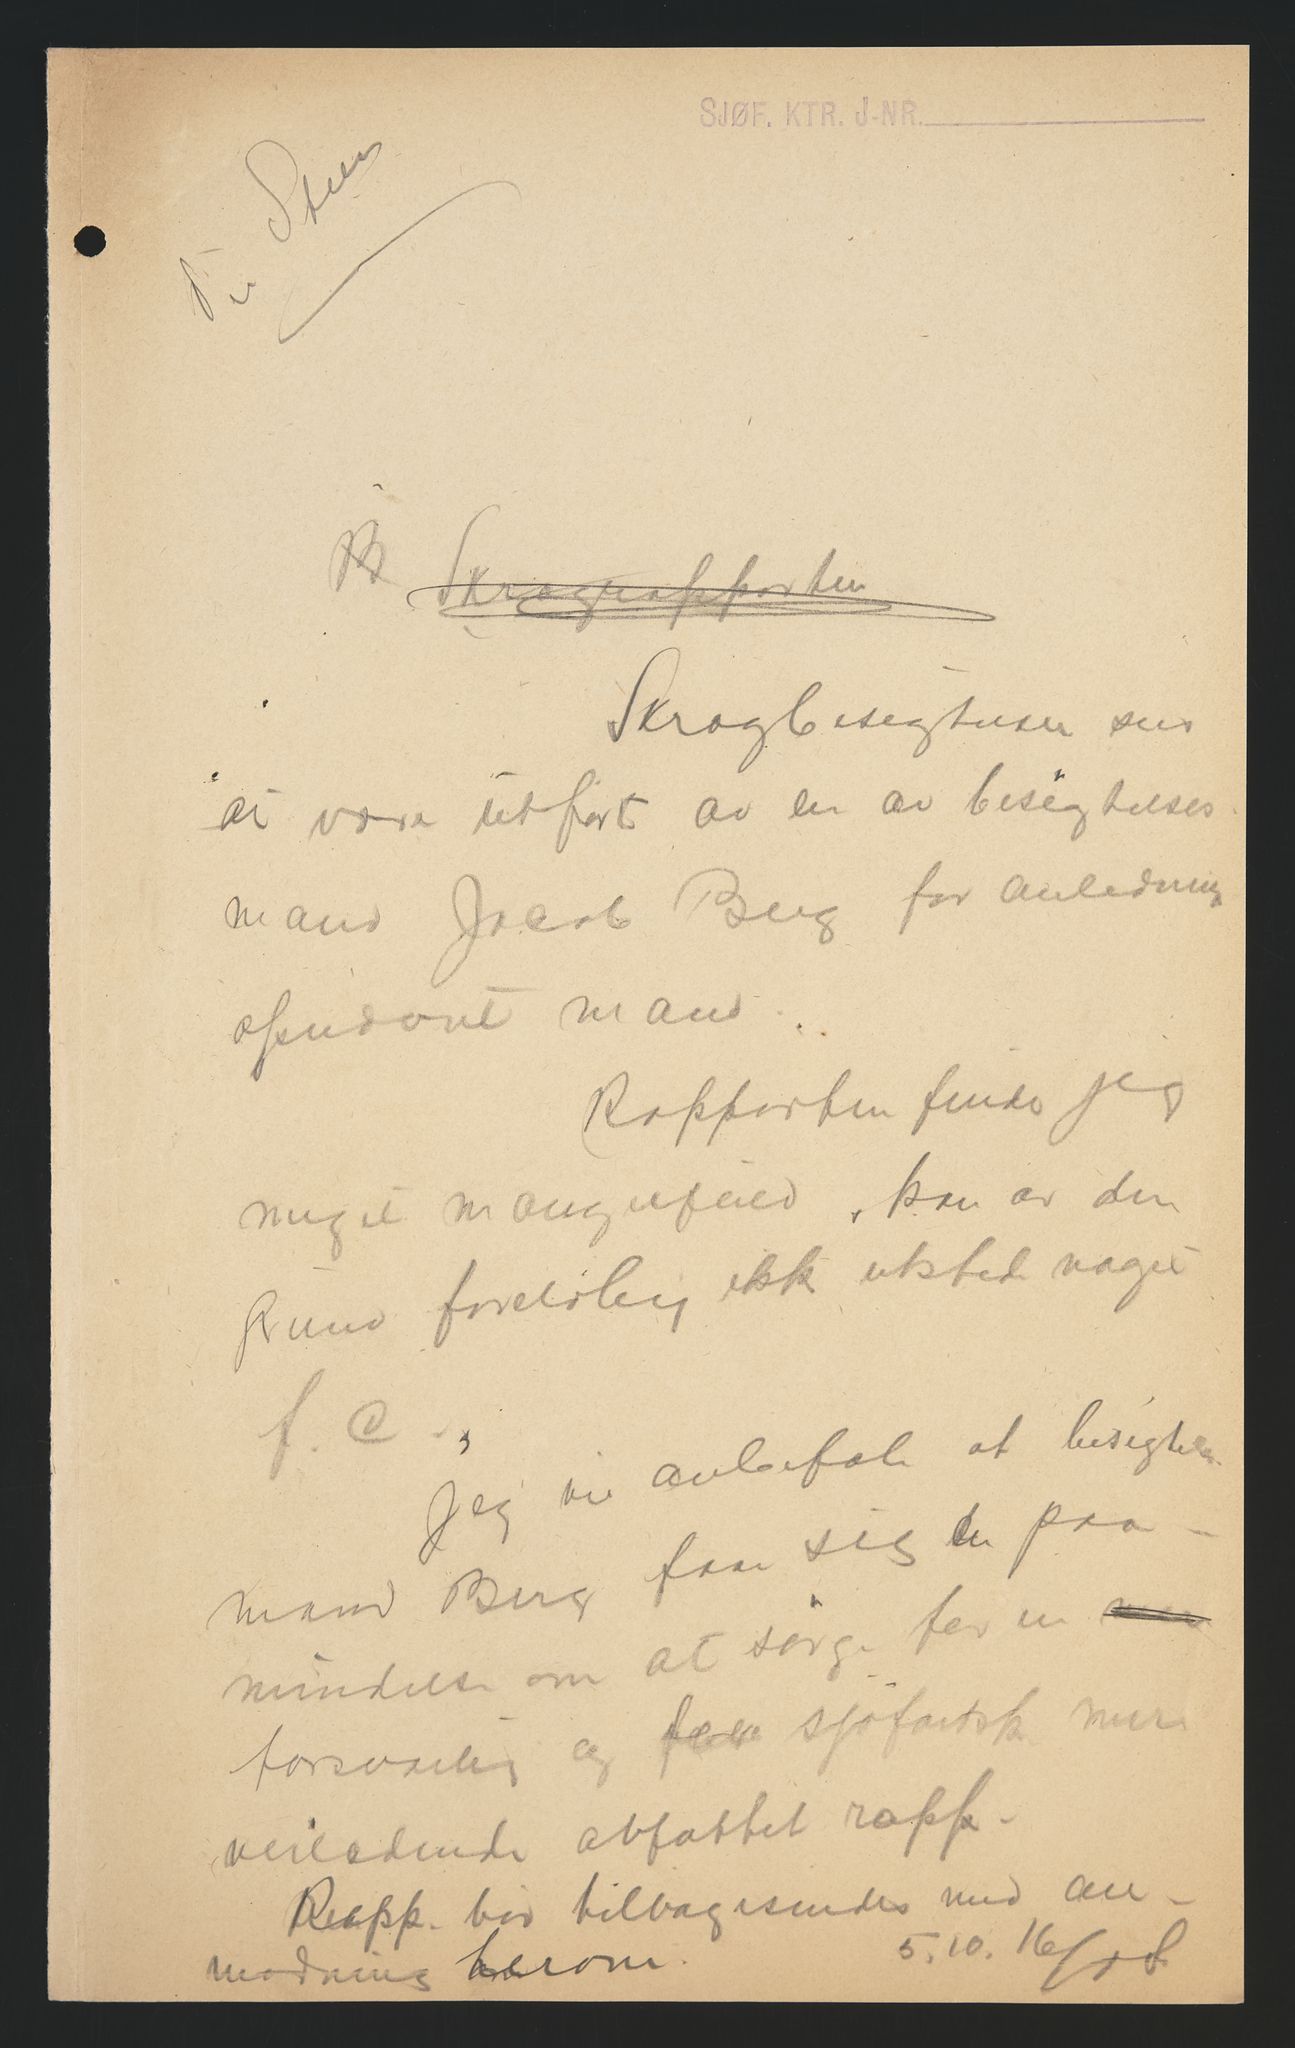 SJØF. KTR. J-NR.
Skrograpporten
Skrogbesigtelsen sees
at være utført av en av besigtelses
mand Jacob Berg for anledning
opnævnt mand.
Rapporten finder jeg
meget mangelfuld, kan av den
grund foreløbig ikke utstede noget
f. C.
Jeg vil anbefale at besigtelses
mand Berg faar sig en paa-
mindelse om at sørge for en
forsvarlig og sjøfartsk mere
veiledende avfattet rapp.
Rapp. bør tilbagesendes med an-
modning herom. 5.10.16